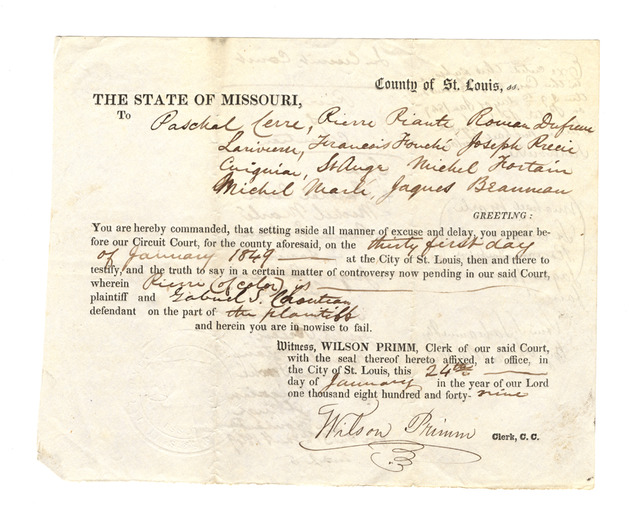 County of St. Louis, ss.
THE STATE OF MISSOURI,
To Paschal Cerre, Pierre Piante, Roman Dufreue
Lariviere, Francois Fouché, Joseph
St Ange Michel Fortain
Michel Marli, Jaques Beauman
GREETING:
You are hereby commanded, that setting aside all manner of excuse and delay, you appear be-
fore our Circuit Court, for the county aforesaid, on the thirty first day
of January 1849 at the City of St. Louis, then and there to
testify, and the truth to say in a certain matter of controversy now pending in our said Court,
wherein Pierre (of color) is
plaintiff and Gabriel S. Chouteau
defendant on the part of the plaintiff
and herein you are in nowise to fail.
Witness, WILSON PRIMM, Clerk of our said Court,
with the seal thereof hereto affixed, at office, in
the City of St. Louis, this 24th
day of January in the year of our Lord
one thousand eight hundred and forty-nine
Wilson Primm Clerk, C. C.